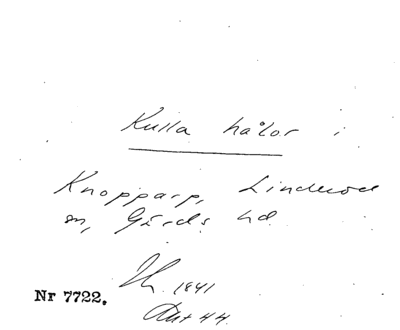 Kulla hålor i
Knopparp, Linderöd
sn, Gärds hd.
1841
Nr 7722.
44